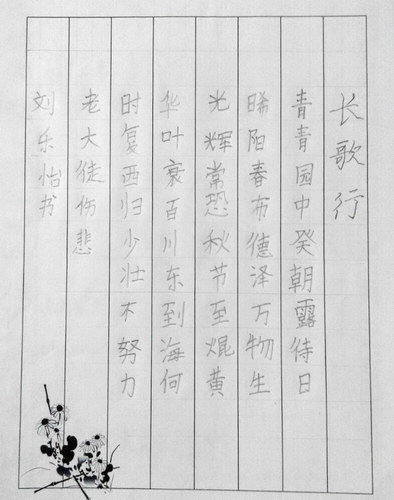 长歌行
青青园中癸朝露待日
晞阳春布德泽万物生
光辉常恐秋节至焜黄
华叶衰百川东到海何
时复西归少壮不努力
老大徒伤悲
刘乐怡书